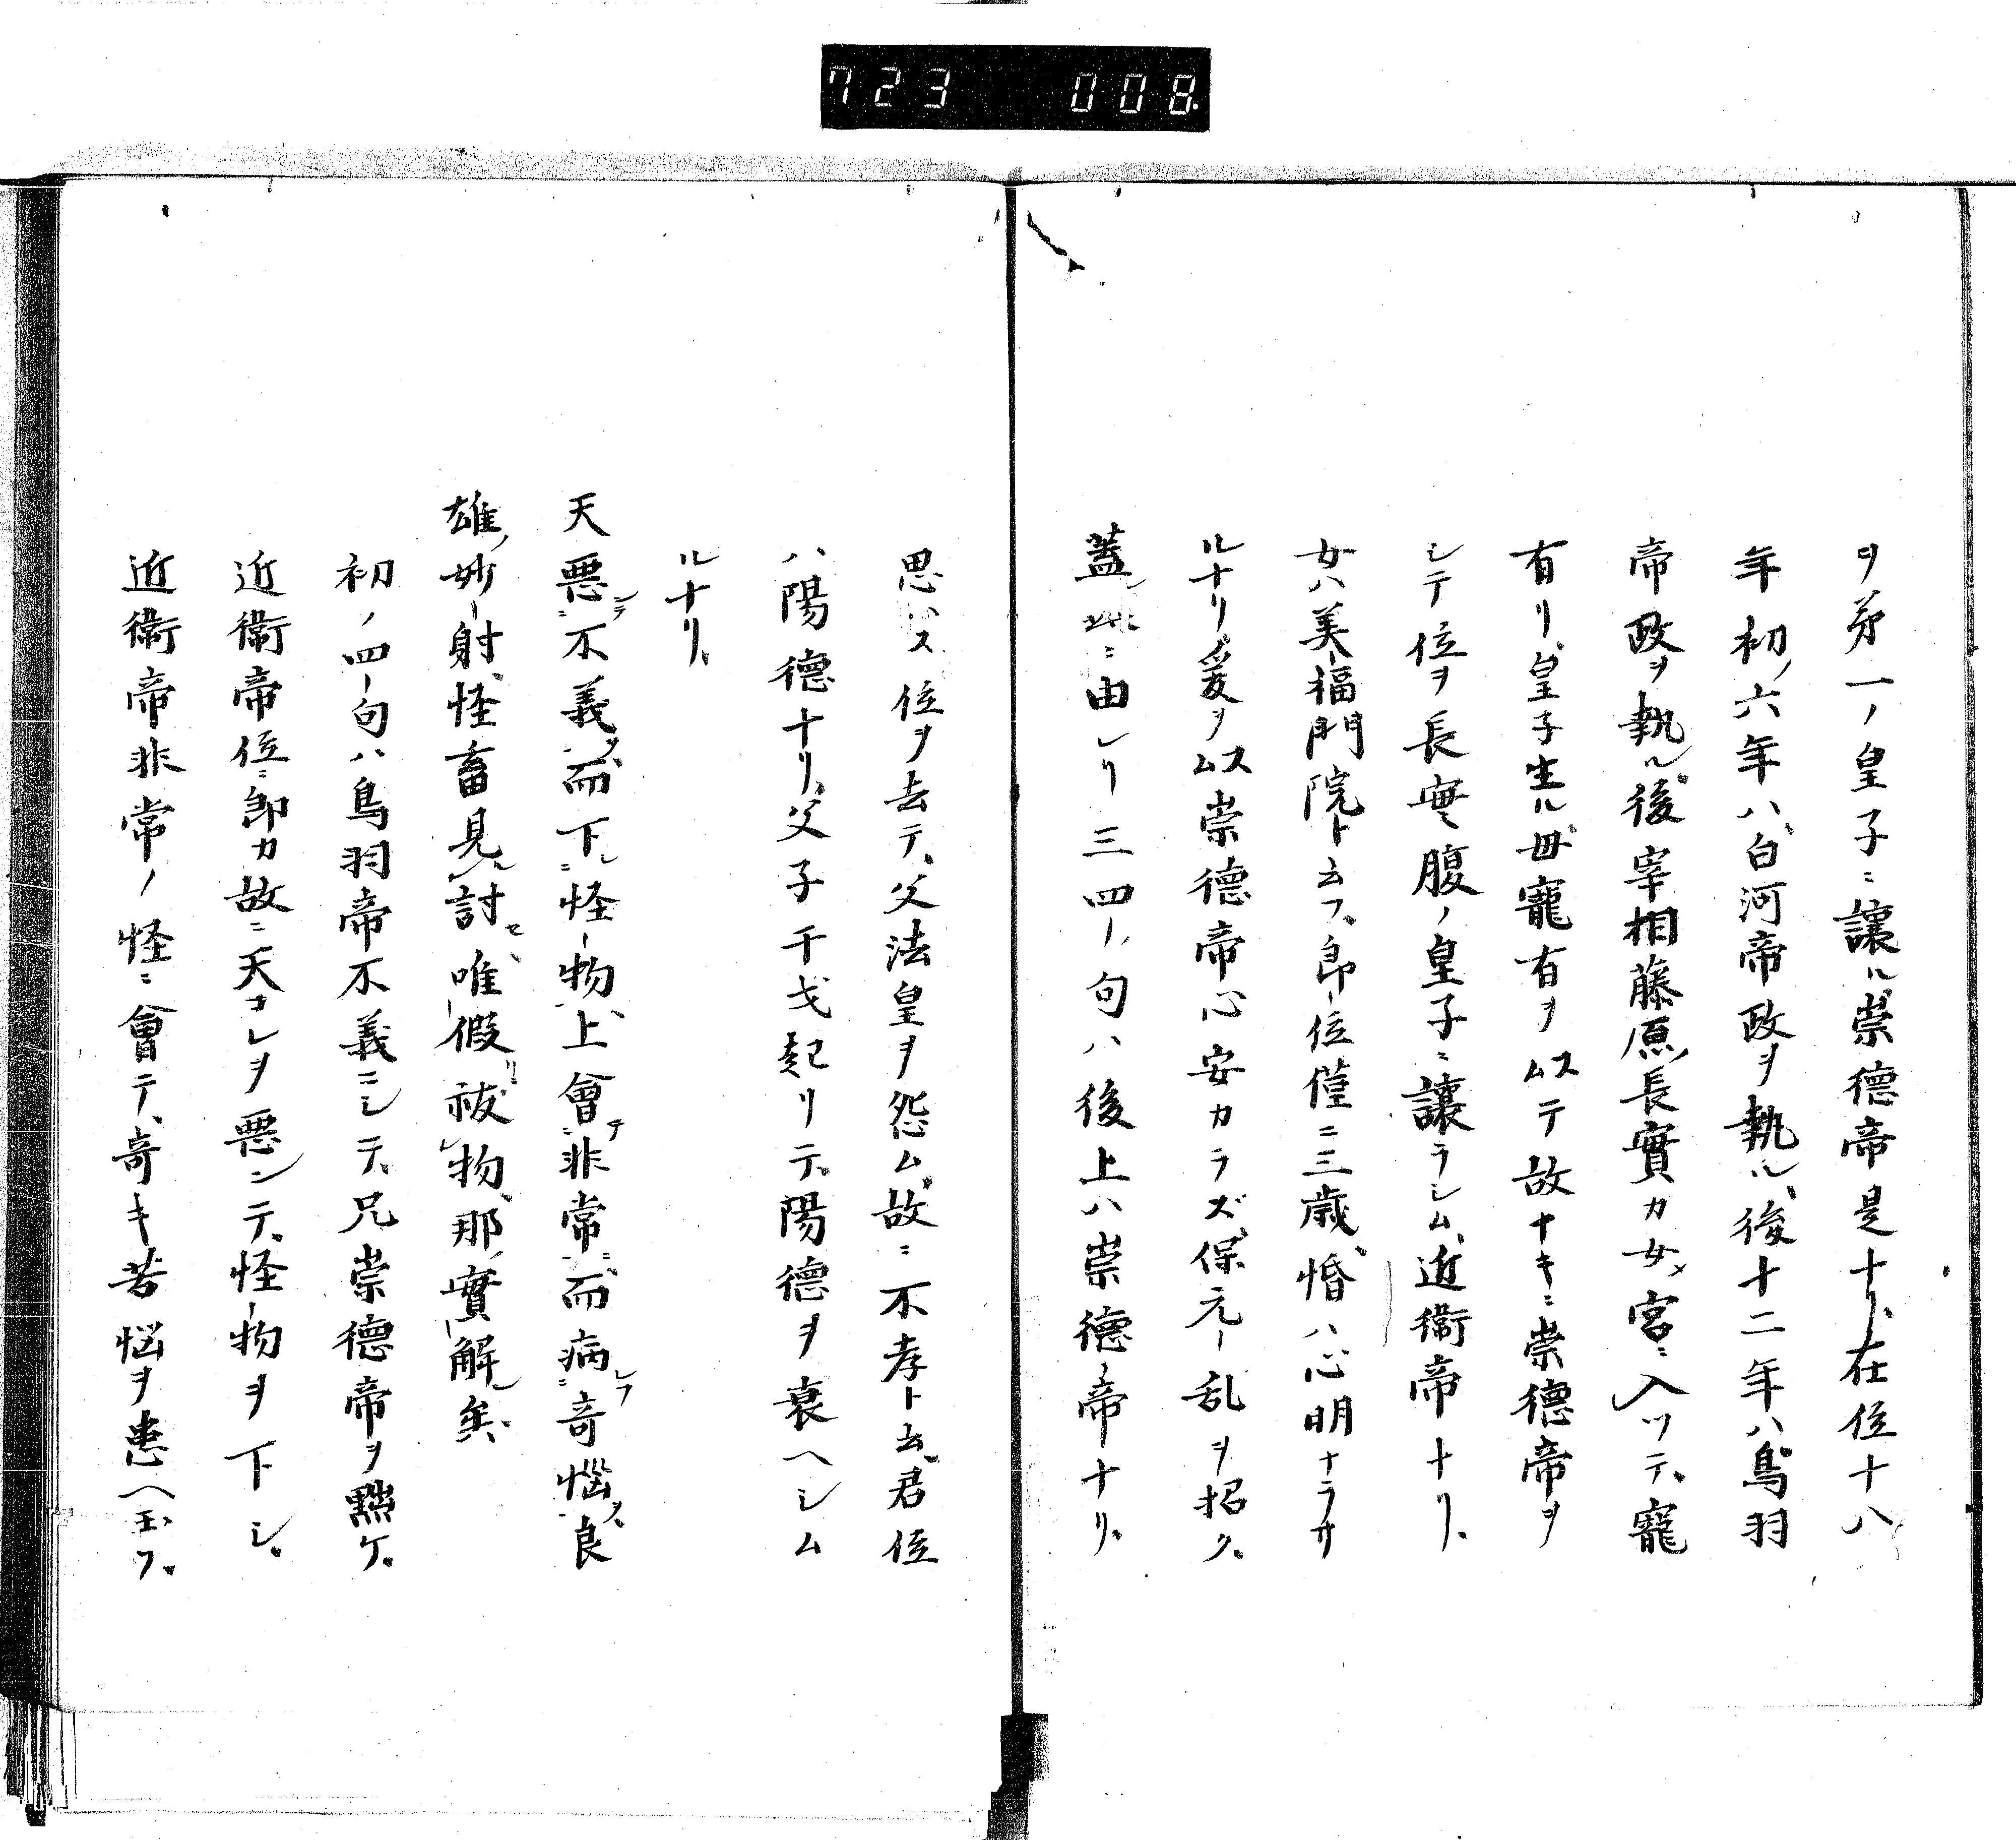 723 008
ヲ第一ノ皇子ニ讓ル崇德帝是ナリ在位十八
年初ノ六年ハ白河帝政ヲ執ル後十二年ハ鳥羽
帝政ヲ執ル後宰相藤原ノ長實カ女メ宮ニ入ツテ寵
有リ皇子生ル母寵有ヲ以テ故ナキニ崇德帝ヲ
シテ位ヲ長實腹ノ皇子ニ讓ラシム近衞帝ナリ
女ハ美福門院ト云フ即位僅ニ三歲惛ハ心明ナラサ
ルナリ爰ヲ以ス崇德帝心安カラズ保元ノ乱ヲ招ク
蓋シ此ニ由レリ三四ノ句ハ後上ハ崇德帝ナリ
思ハス位ヲ去テ父法皇ヲ怨ム故ニ不孝ト云君位
ハ陽德ナリ父子干戈起リテ陽德ヲ衰ヘシム
ルナリ
天悪シテ不義而下怪物上會非常而病奇惱良
雄妙射怪畜見討唯假祓物那實解矣
初ノ四句ハ鳥羽帝不義ニシテ兄崇德帝ヲ黜ケ
近衞帝位ニ即カ故ニ天コレヲ悪ンテ怪物ヲ下シ
近衞帝非常ノ怪ニ會テ奇キ苦悩ヲ患ヘ玉フ